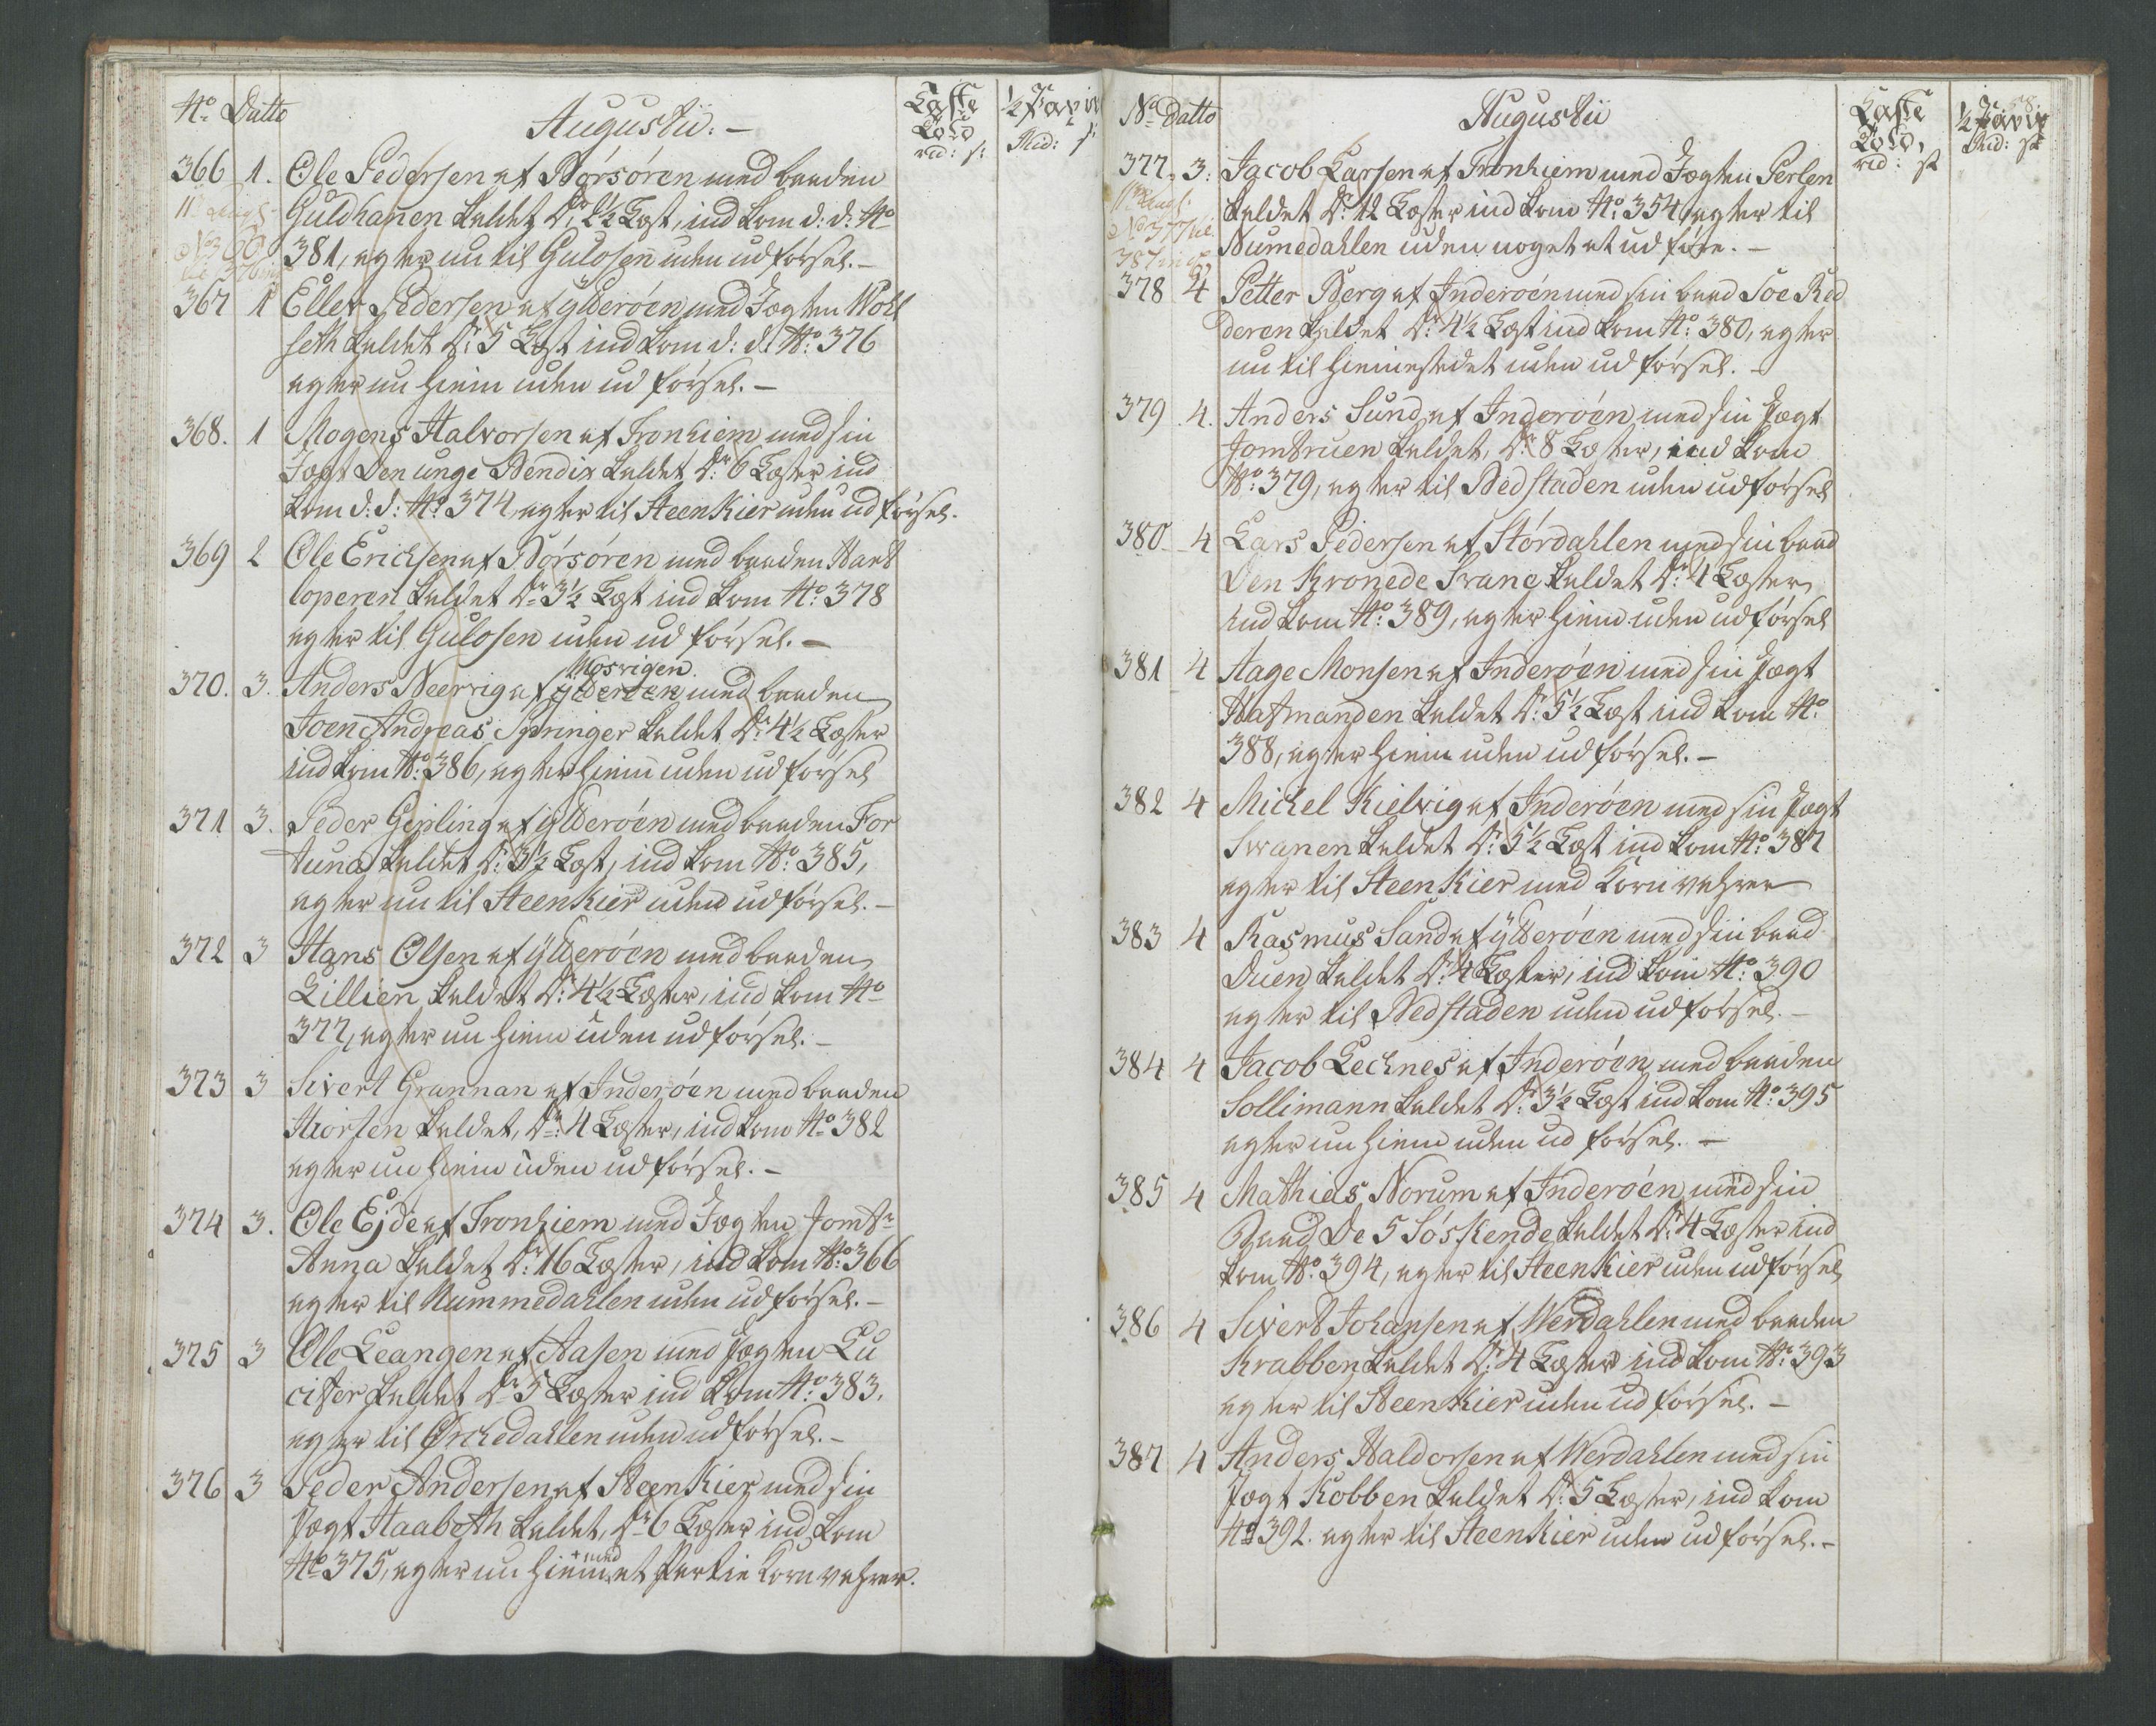 No. Datto
Augustii. –
Læste
Told
rd: s:
½ Pavis
Rd: s
366 1. Ole Pedersen af Börsören med baaden
11 Aug:
Guldhanen kaldet Dr. 2½ Læst, ind kom d: d: No
No 366
381, agter nu til Gulosen uden udförsel. –
til 376
367 1 Eller Pedersen af ÿtteröen med Jagten Wohl
seth kaldet Dr: 5 Læst ind kom d: d: No: 376
agter nu hiem uden udförsel. –
368. 1 Mogens Halvorsen af Tronhiem med sin
Jagt Den unge Bendix kaldet Dr: 6 Læster ind
kom d: d: No: 374, agter til Steenkier uden udförsel.
369 2 Ole Erichsen af Börsören med baaden Hart
loperen kaldet Dr 3½ Læst ind kom No: 378
agter til Gulosen uden udförsel. –
Mosvigen
370. 3. Anders Neervig af ÿtteröen med baaden
Joen Andreas Springer kaldet Dr. 4½ Læster
ind kom No: 386, agter hiem uden udförsel
371 3. Peder Gipling af ÿtteröen med baaden For
tuna kaldet Dr: 3½ Læst, ind kom No: 385,
agter nu til Steenkier uden udförsel. –
372 3 Hans Olsen af ÿtteröen med baaden
Lillien kaldet Dr: 4½ Læster, ind kom No
377, agter nu hiem uden udförsel. –
373 3 Sivert Grannan af Inderöen med baaden
Hiorten kaldet, Dr: 4 Læster, ind kom No 382
agter nu hiem uden udförsel. –
374 3. Ole Ejde af Tronhiem med Jagten Jomfr
Anna kaldet Dr: 16 Læster, ind kom No: 366
agter til Nummedahlen uden udförsel. –
375 3 Ole Leangen af Aasen med Jagten Lu
cifer kaldet Dr 5 Læster ind kom No: 383.
agter til Orchedahlen uden udförsel. –
376 3 Peder Andersen af Steenkier med sin
Jagt Haabeth kaldet, Dr 6 Læster ind kom
+ med
No 375, agter nu hiem et Partie Korn vahrer.
No Datto
Augustii
Læste
Told,
rd: s
58.
½ Pavis
Rd: s
377. 3. Jacob Larsen af Tronhiem med Jagten Perlen
11 Aug:
kaldet Dr: 12 Læster ind kom No: 354, agter til
No 377 til
Numedahlen uden noget at udföre. –
387
378 4 Petter Berg af Inderöen med sin baad Söe Red
deren kaldet Dr: 4½ Læst ind kom No: 380, agter
nu til hiemestedet uden udförsel. –
379 4. Anders Sund af Inderöen med sin Jagt
Jomfruen kaldet, Dr: 8 Læster, ind kom
No: 379, agter til Bedstaden uden udförsel
380 4 Lars Pedersen af Stördahlen med sin baad
Den Kronede Svane kaldet Dr: 4 Læster,
ind kom No: 389, agter hiem uden udförsel
381 4 Aage Monsen af Inderöen med sin Jagt
Hafmanden kaldet Dr: 5½ Læst ind kom No
388, agter hiem uden udförsel. –
382 4 Michel Kielvig af Inderöen med sin Jagt
Svanen kaldet Dr: 5½ Læst ind kom No: 387
agter til Steenkier med Korn vahrer
383 4 Rasmus Sand af ÿtteröen med sin baad
Duen kaldet Dr: 4 Læster, ind kom No: 390
agter til Bedstaden uden udförsel. –
384 4 Jacob Lechnes af Inderöen med baaden
Sollimann kaldet Dr: 3½ Læst ind kom No: 395
agter nu hiem uden udförsel. –
385 4 Mathias Norum af Inderöen med sin
Baad De 5 Söskende kaldet Dr 4 Læster ind
kom No: 394, agter til Steenkier uden udförsel
386 4 Sivert Johansen af Werdahlen med baaden
Krabben kaldet Dr 4 Læster ind kom No: 393
agter til Steenkier uden udförsel. –
387 4 Anders Haldorsen af Werdahlen med sin
Jagt Kobben kaldet Dr: 5 Læster, ind kom
No 392. agter til Steenkier uden udförsel. –